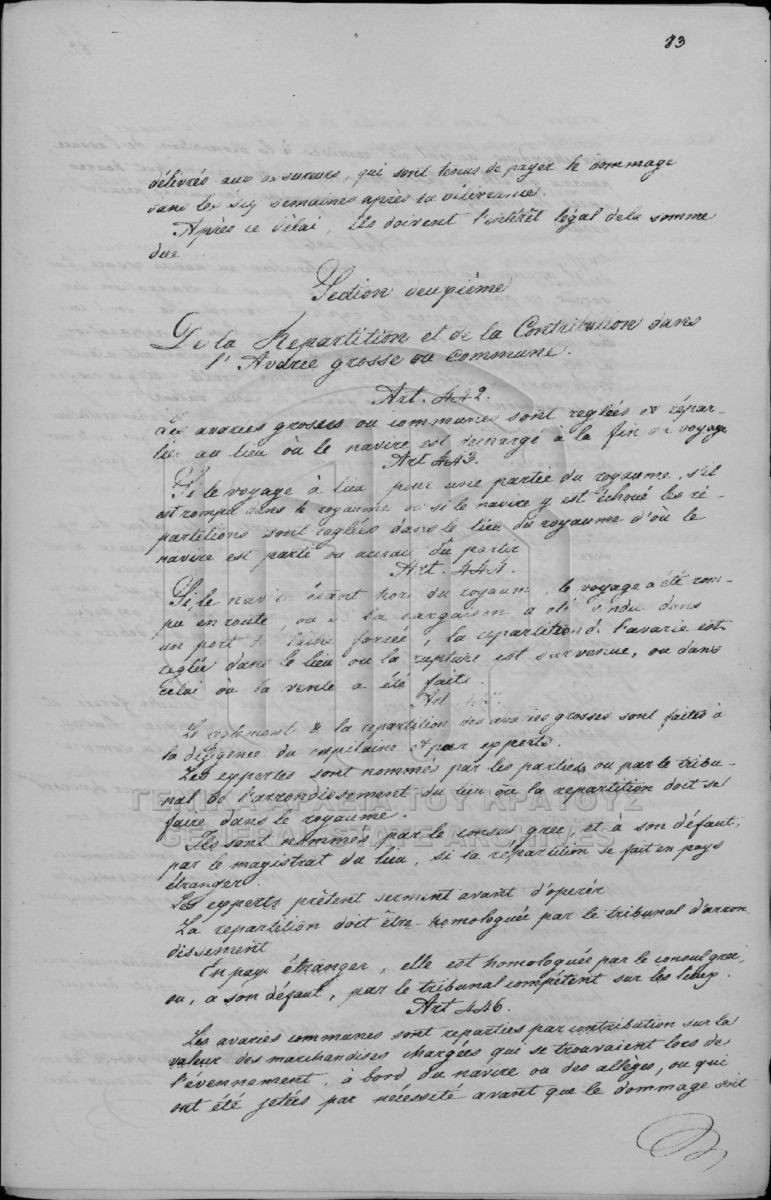 83
délivrés aux assureurs, qui sont tenus de payer le dommage
dans les six semaines après la délivrance
Après ce délai, ils doivent l'intérêt légal de la somme
due
Section deuxième
De la Repartition et de la Contribution dans
l'Avarie grosse ou commune.
Art. 442.
Les avaries grosses ou communes sont reglées et répar-
ties au lieu où le navire est
à la fin du voyage
Art 443.
Si le voyage à lieu pour une partie du royaume, s'il
est rompu dans le royaume ou si le navire y est échoué les ré-
partitions sont reglées dans le lieu du royaume d'où le
navire est parti ou aurait dû partir
Art. 444.
Si, le navire étant hors du royaume, le voyage a été rom-
pu en route, ou si la cargaison a été vendue dans
un port de forcée, la repartition de l'avarie est
reglée dans le lieu ou la rupture est survenue, ou dans
celui où la vente a été faite.
Art
Le reglement & la repartition des avaries grosses sont faites à
la diligence du capitaine et par experts.
Les expertes sont nommés par les parties, ou par le tribu-
nal de l'arrondissement du lieu ou la repartition doit se
faire dans le royaume.
ΓΕΝΙΚΑ ΑΡΧΕΙΑ ΤΟΥ ΚΡΑΤΟΥΣ
GENERAL STATE ARCHIVES
Ils sont nommés par le consus grec, et à son défaut,
par le magistrat du lieu, si la répartition se fait en pays
étranger.
Les experts prêtent serment avant d'opérér
La repartition doit être homologuée par le tribunal d'arron
dissement
En pays étranger, elle est homologuée par le consul grec,
ou, a son défaut, par le tribunal compétent sur les lieux.
Art 446.
Les avaries communes sont reparties par contribution sur la
valeur des marchandises chargées qui se trouvaient lors de
l'évennement, à bord du navire ou des allèges, ou qui
ont été jetées par nécessité avant que le dommage soit